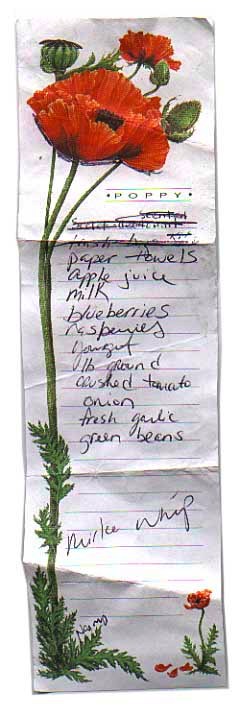 • POPPY •
paper towels
apple juice
milk
blueberries
raspberries
yougurt
1 lb ground
crushed tomato
onion
fresh garlic
green beans
Mirlce Whip